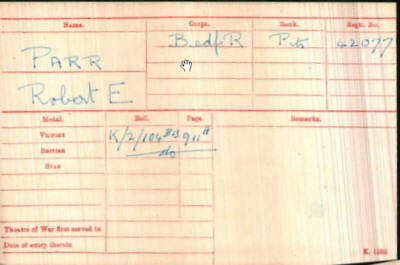 Name. Corps. Rank. Regtl. No.
PARR Bedf R Pte 42077
Robert E
Medal. Roll. Page. Remarks.
VICTORY K/2/104 B13 911
BRITISH do
STAR
Theatre of War first served in
Date of entry therein
K. 1380